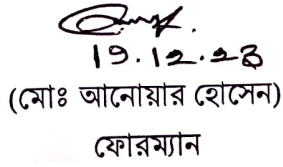 19.12.23
(মোঃ আনোয়ার হোসেন)
ফোরম্যান